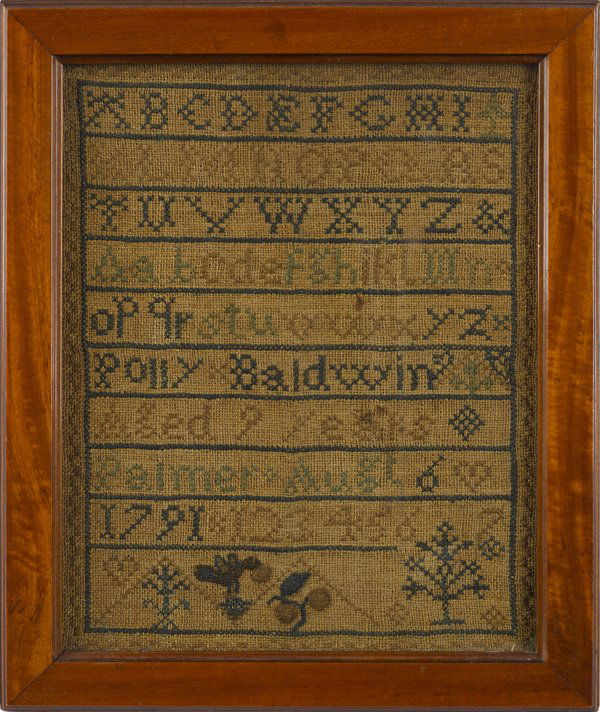 ABCDEFGHI
KLMNOPQRS
TUVWXYZ&
Aabcdefghiklmn
opqrstuvwxyz
Polly Baldwin
Aged 9 Years
Palmer Augt 6
1791 123456 7